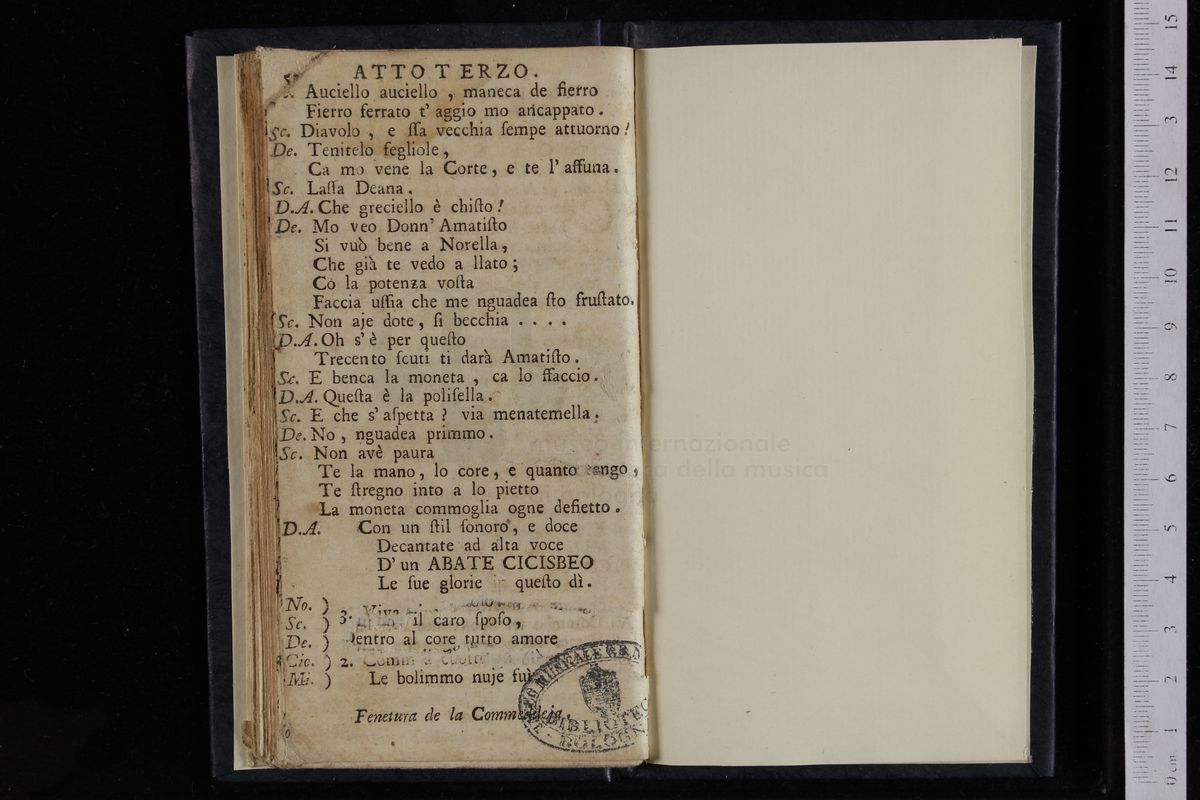 ATTO TERZO.
Auciello auciello , maneca de fierro
Fierro ferrato t' aggio mo ancappato .
Sc. Diavolo , e ſſa vecchia ſempe attuorno !
De. Tenitelo fegliole ,
Ca mo vene la Corte , e te l' affuna .
Sc. Laſſa Deana .
D.A. Che greciello è chiſto !
De. Mo veo Donn' Amatiſto
Si vuò bene a Norella ,
Che già te vedo a llato ;
Cò la potenza voſta
Faccia uſſia che me nguadea ſto fruſtato.
Sc. Non aje dote , ſi becchia . . . .
D.A. Oh s' è per queſto
Trecento ſcuti ti darà Amatiſto .
Sc. E benca la moneta , ca lo ſfaccio .
D.A. Queſta è la poliſella .
Sc. E che s' aſpetta ? via menatemella .
De. No , nguadea primmo .
Sc. Non avè paura
Te la mano , lo core , e quanto tengo ,
Te ſtregno into a lo pietto
La moneta commoglia ogne defietto .
D.A. Con un ſtil ſonoro , e doce
Decantate ad alta voce
D' un ABATE CICISBEO
Le ſue glorie in queſto dì .
No. )
Sc. ) 3. Viva il caro ſpoſo ,
De. ) Dentro al core tutto amore
Cic. ) 2.
Mi. ) Le bolimmo nuje
Fenetura de la Commedeja.
BIBLIOTEC
BOLOGN
museo internazionale
della musica
0 cm 1 2 3 4 5 6 7 8 9 10 11 12 3 14 15